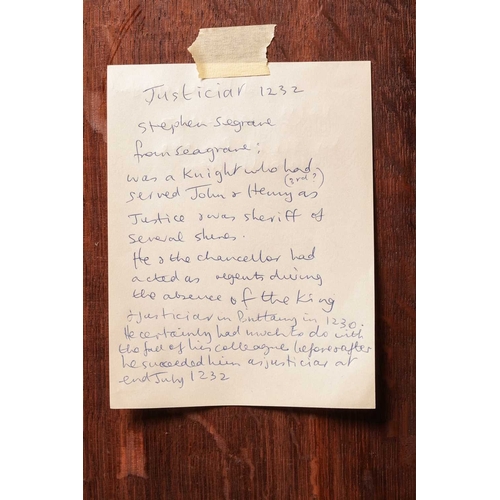 Justiciar 1232
Stephen Segrave
from Seagrave;
was a Knight who had
served John & Henry (3rd?) as
Justice & was sheriff of
several shires.
He & the chancellor had
acted as regents during
the absence of the King
& justiciar in Brittany in 1230.
He certainly had much to do with
the fall of his colleague before & after
he succeeded him as justiciar at
end July 1232